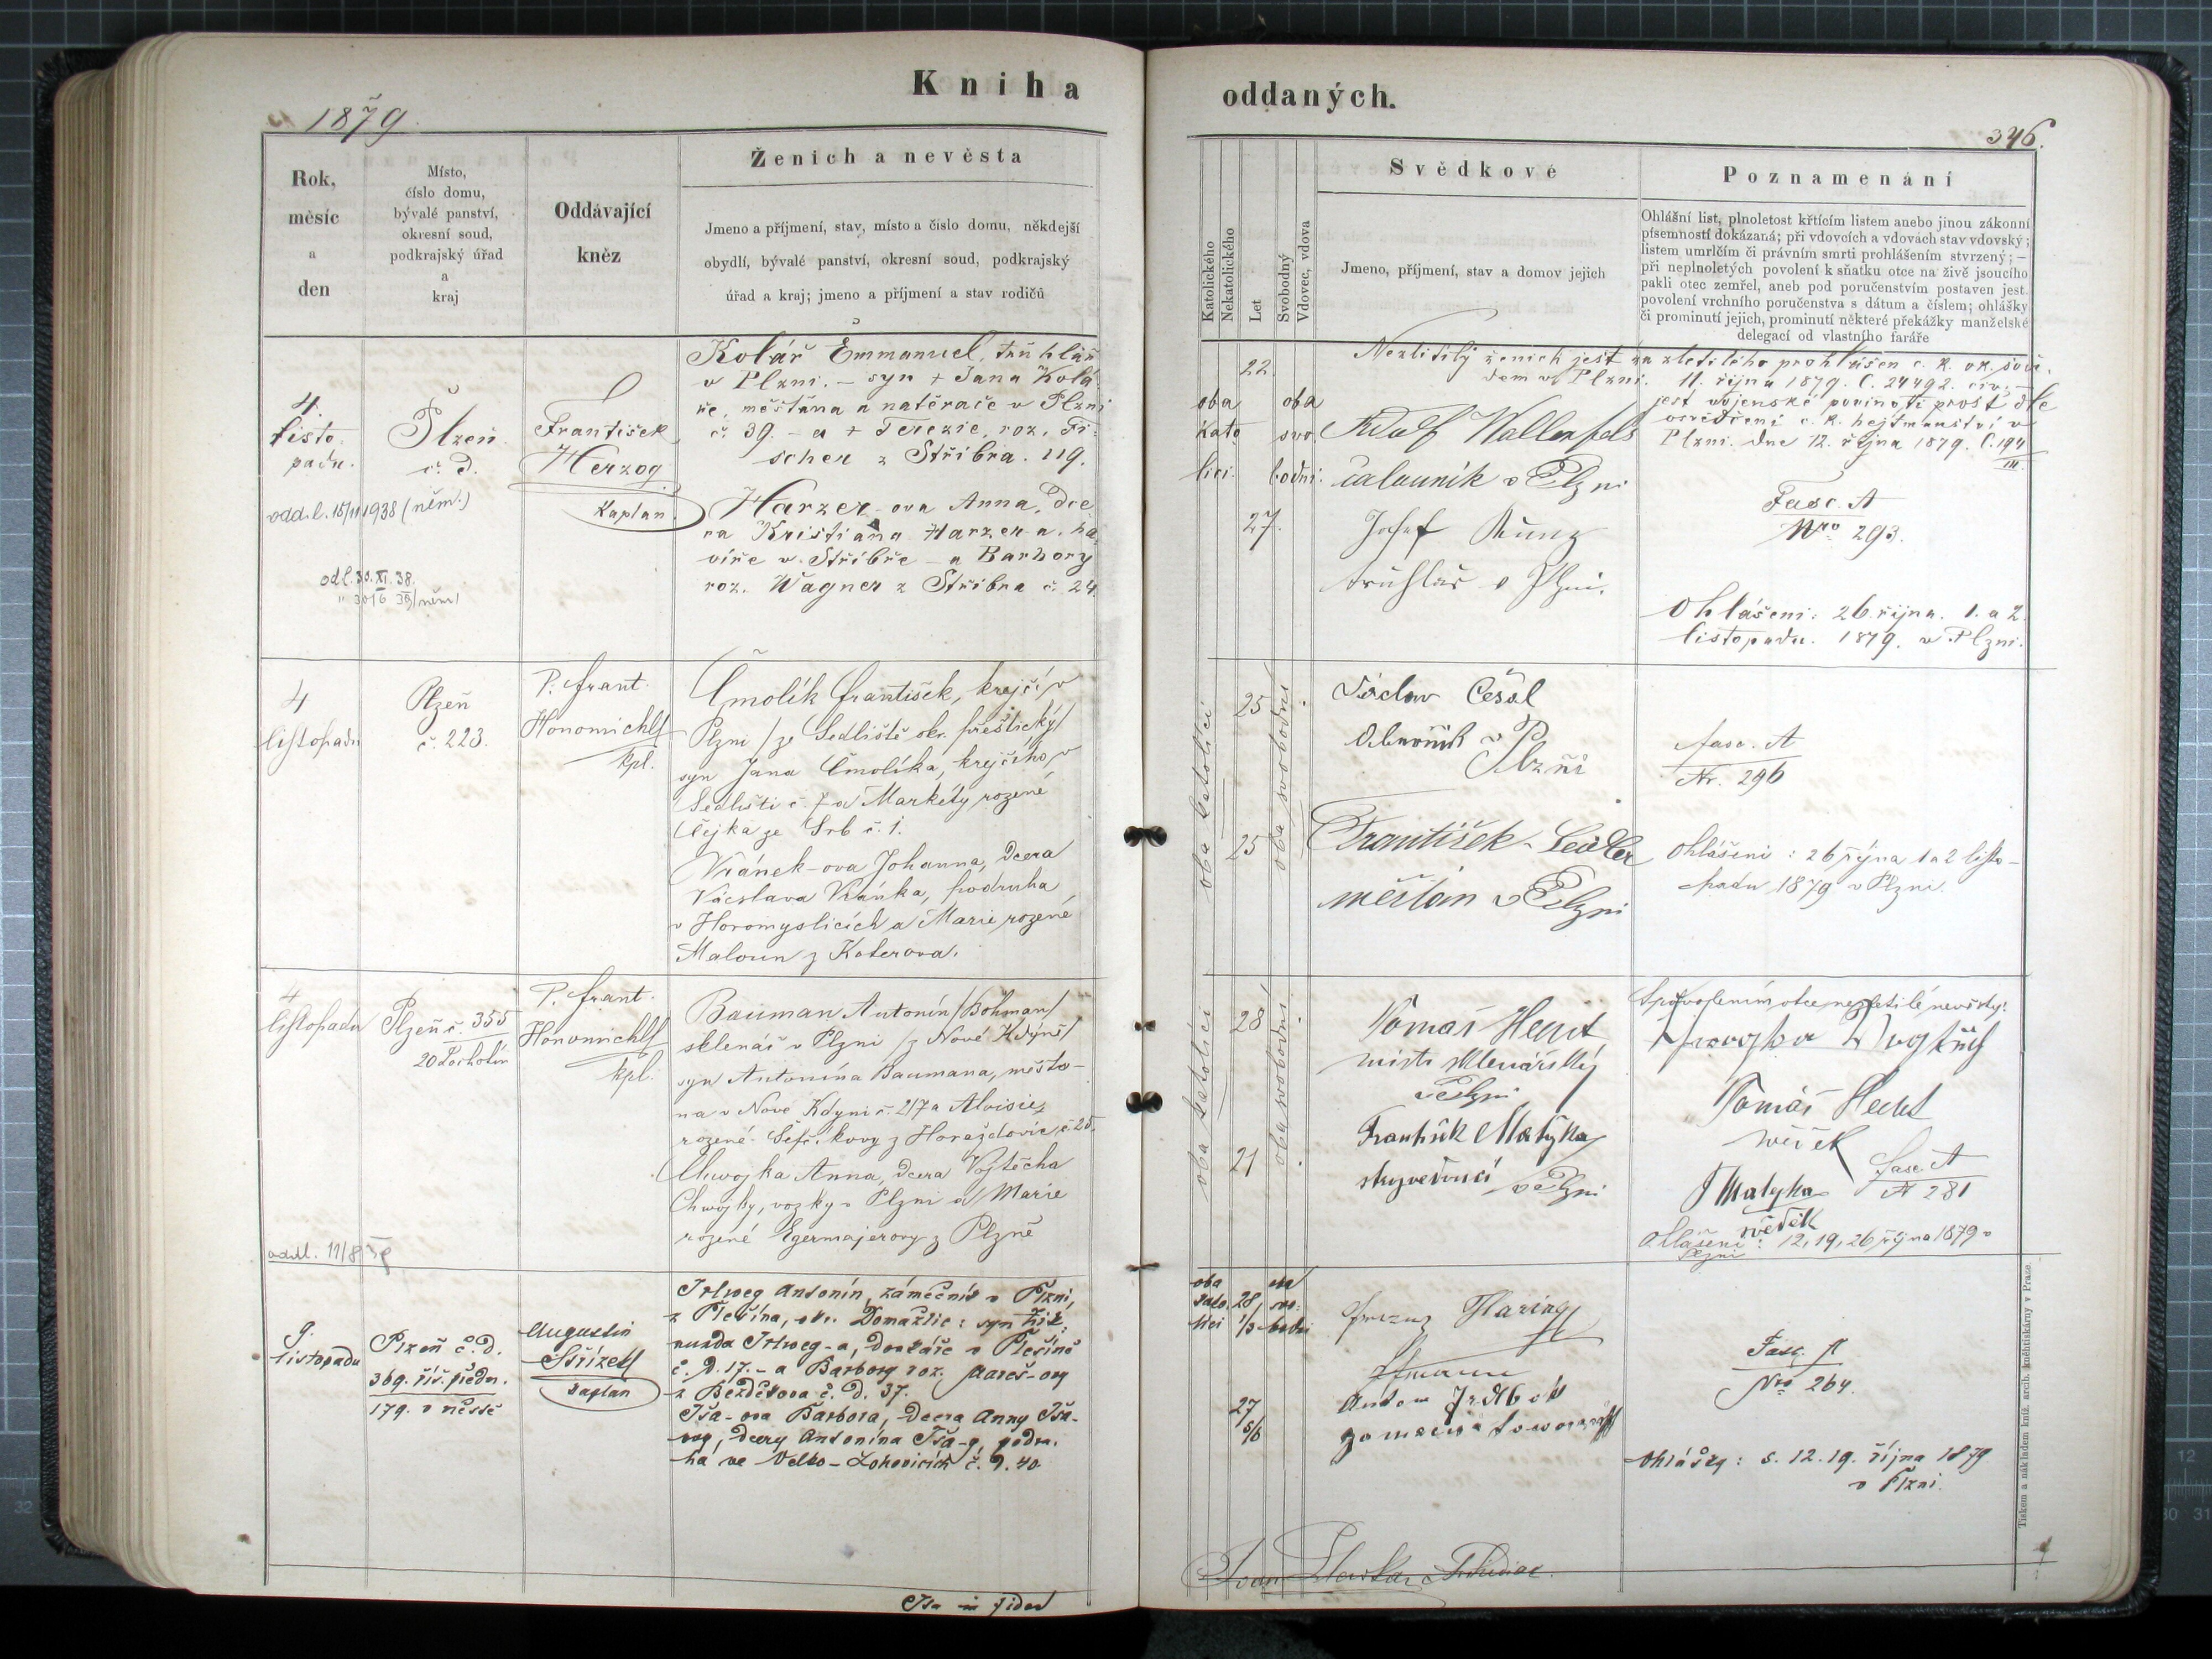 Kniha
oddaných.
1879
346.
Rok,
měsíc
a
den
Místo,
číslo domu,
bývalé panství,
okresní soud,
podkrajský úřad
a
kraj
Oddávající
kněz
Ženich a nevěsta
Jmeno a příjmení, stav, místo a číslo domu, někdejší
obydlí, bývalé panství, okresní soud, podkrajský
úřad a kraj; jmeno a příjmení a stav rodičů
Katolického
Nekatolického
Let
Svobodný
Vdovec, vdova
Svědkové
Jmeno, příjmení, stav a domov jejich
Poznamenání
Ohlášní list, plnoletost křtícím listem anebo jinou zákonní
písemností dokázaná; při vdovcích a vdovách stav vdovský;
listem umrlčím či právním smrti prohlášením stvrzený; —
při neplnoletých povolení k sňatku otce na živě jsoucího
pakli otec zemřel, aneb pod poručenstvím postaven jest
povolení vrchního poručenstva s dátum a číslem; ohlášky
či prominutí jejich, prominutí některé překážky manželské
delegací od vlastního faráře
4.
listo-
padu.
Plzeň
č. d.
František
Herzog
Kaplan
Kolář Emmanuel, truhlář
v Plzni. – syn + Jana Kolá-
ře, měštana a natěrače v Plzni
č. 39. – a + Terezie, roz. Fi-
scher z Stříbra. 119.
Harzer-ova Anna, dce-
ra Kristiana Harzer-a, ha-
víře v Stříbře – a Barbory
roz. Wagner z Stříbra č. 24.
odd. l. 15/11 1938 (něm.)
odl. 30. XI. 38.
" 30/6 39 /něm/
22.
oba
kato
lici.
oba
svo-
bodni.
27.
Nezletilý ženich jest za zletilého prohlášen c. k. ok. sou-
dem v Plzni. 11. října 1879. č. 24492. civ. –
jest vojenské povinosti prost dle
osvědčení c. k. hejtmanství v
Plzni. dne 12. října 1879. č. 194
III.
Adolf Wallenfels
čalouník v Plzni
Josef
truhlář v Plzni.
Fasc. A
Nro 293.
Ohlášení: 26. října. 1. a 2.
listopadu. 1879. v Plzni.
4
listopadu
Plzeň
č. 223.
P. Frant.
Honomichl
kpl.
Čmolík František, krejčí v
Plzni /ze Sedliště okr. přeštický/
syn Jana Čmolíka, krejčího v
Sedlišti č. 7 a Markéty rozené
Čejka ze Srb č. 1.
Vránek-ova Johanna, dcera
Václava Vránka, podruha
v Horomyslicích a Marie rozené
Maloun z Koterova.
oba katolíci
25
oba svobodní
25
Václav Česal
v
Plzni
František Seidler
měštan v Plzni
fasc. A
Nr. 296
Ohlášení: 26 října 1 a 2 listo-
padu 1879 v Plzni.
4
listopadu
Plzeň č. 355
20 Lochotín
P. Frant.
Honomichl
kpl.
Bauman Antonín /Böhman/
sklenář v Plzni /z Nové Kdýně/
syn Antonína Baumana, měšta-
na v Nové Kdyni č. 217 a Aloisie,
rozené Šefčíkovy z Horažďovic č. 25.
Chwojka Anna, dcera Vojtěcha
Chwojky, vozky v Plzni a Marie
rozené Egermajerovy z Plzně
oddl. 11/8 39
oba katolíci
28
oba svobodní
21
Tomáš Hecht
mistr sklenářský
v Plzni
František Matýka
v Plzni
S povolením otce nezletilé nevěsty:
Tomáš Hecht
svědek
F Matyka
svědek
fasc. A
N 281
Ohlášení: 12, 19, 26 října 1879 v
Plzni
9.
listopadu
Plzeň č. d.
369. říš. předm.
179. v městě
Augustin
Střízek
kaplan
Irlweg Antonín, zámečník v Plzni,
z Plešína, okr. Domažlic: syn Zik-
munda Irlweg-a, domkáře v Plešině
č. d. 17. – a Barbory roz. Mareš-ovy
z Bezděkova č. d. 37.
Tša-ova Barbora, dcera Anny Tša-
ovy, dcery Antonína Tša-y, podru-
ha ve Velko-Lohovicích č. d. 40.
oba
kato-
lici
28
1/3
oba
svo-
bodni
27
5/6
Haring
Anton
Fasc. A
Nro 264.
Ohlášky: 5. 12. 19. října 1879
v Plzni.
Tiskem a nákladem kníž. arcib. knihtiskárny v Praze.